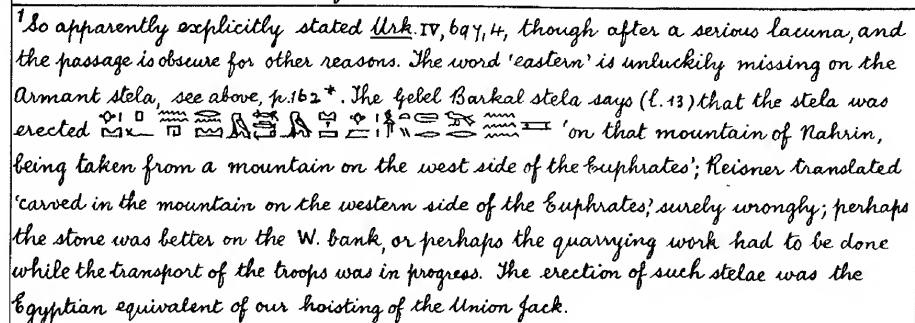 ¹So apparently explicitly stated Urk. IV, 697, 4, though after a serious lacuna, and
the passage is obscure for other reasons. The word 'eastern' is unluckily missing on the
Armant stela, see above, p. 162*. The Gebel Barkal stela says (l. 13) that the stela was
erected 'on that mountain of Nahrin,
being taken from a mountain on the west side of the Euphrates'; Reisner translated
'carved in the mountain on the western side of the Euphrates,' surely wrongly; perhaps
the stone was better on the W. bank, or perhaps the quarrying work had to be done
while the transport of the troops was in progress. The erection of such stelae was the
Egyptian equivalent of our hoisting of the Union Jack.